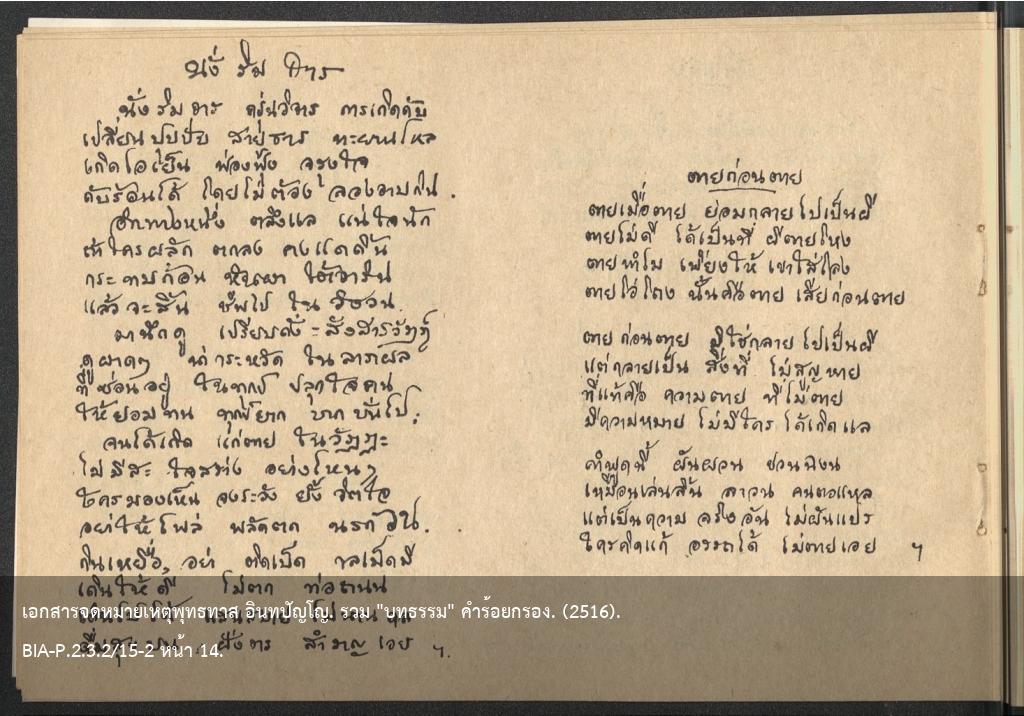 นั่ง ริม ธาร
นั่ง ริม ธาร ครุ่นวิจาร การเกิดดับ
เปลี่ยน ปุบปับ สายธาร ทะยานไหล
เกิดไอเย็น ฟ่องฟุ้ง จรุงใจ
ดับร้อนได้ โดยไม่ต้อง ลงอาบกิน.
อีกทางหนึ่ง ตลึงแล แน่ใจนัก
ถ้าใครผลัก ตกลง คงแดดิ้น
กระทบก้อน หินผา
แล้ว จะสิ้น ชีพไป ใน
มานึกดู เปรียบดั่ง สังสารวัฏฏ์
ดูผาดๆ น่า ใน
ที่ซ่อนอยู่ ในทุกข์ ปลุกใจคน
ให้ยอมทน ทุกข์ยาก บากบั่นไป.
จนได้เกิด แก่ตาย ในวัฏฏะ
ไม่มีสะ ใจสร่าง อย่างไหนๆ
ใครมองเห็น จงระวัง ยั้ง จิตใจ
อย่าให้ไพล่ พลัดตก นรกวน.
กินเหยื่อ, อย่า ติดเบ็ด
เดินให้ดี ไม่ตก ท่อถนน
ฝั่งธาร สำราญ เอย ฯ.
ตายก่อนตาย
ตายเมื่อตาย ย่อมกลาย ไปเป็นผี
ตายไม่ดี ได้เป็นที่ ผีตายโหง
ตายทำไม เพียงให้ เขาใส่โลง
ตายโอ่โถง นั้นคือตาย เสียก่อนตาย
ตาย ก่อนตาย มิใช่กลาย ไปเป็นผี
แต่กลายเป็น สิ่งที่ ไม่สูญหาย
ที่แท้คือ ความตาย ที่ไม่ตาย
มีความหมาย ไม่มีใคร ได้เกิดแล
คำพูดนี้ ผันผวน ชวนฉงน
เหมือนเล่นลิ้น ลาวน คนตอแหล
แต่เป็นความ จริงอัน ไม่ผันแปร
ใครคิดแก้ อรรถได้ ไม่ตายเอย ฯ
เอกสารจดหมายเหตุพุทธทาส อินทปัญโญ. รวม "บทธรรม" คำร้อยกรอง. (2516).
BIA-P.2.3.2/15-2 หน้า 14.